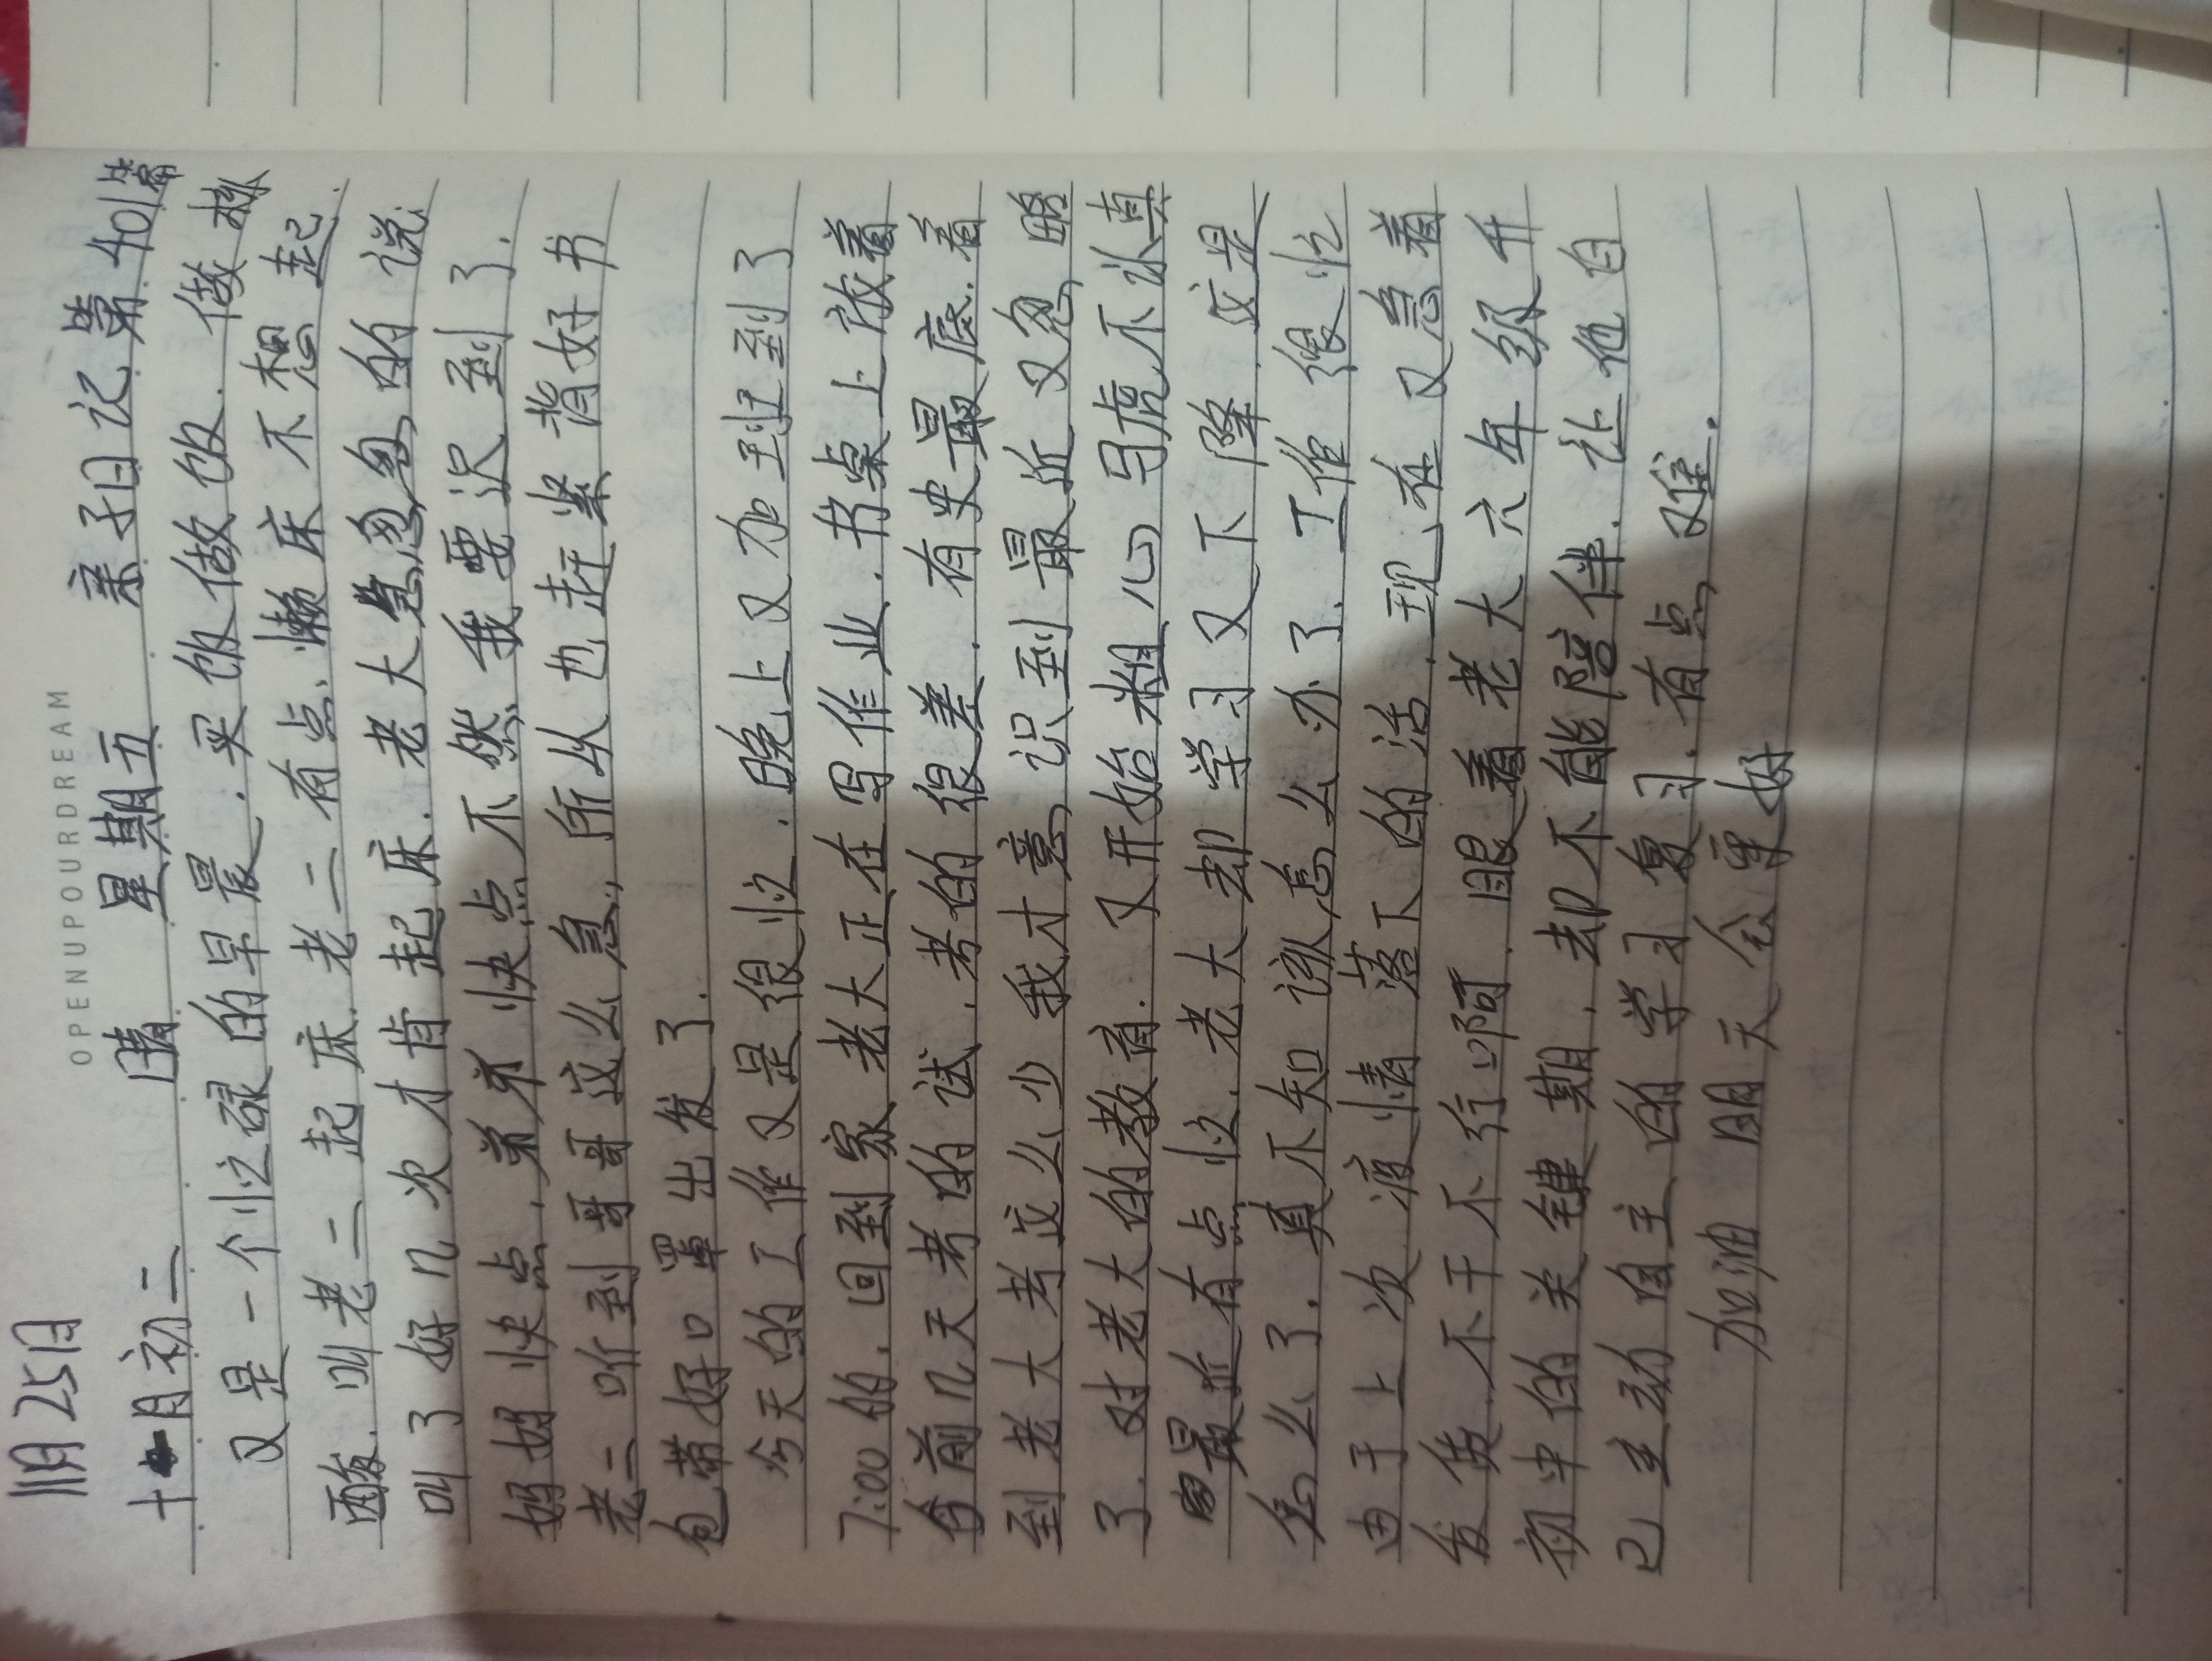 OPENUPOURDREAM
11月25日
十月初二 晴 星期五 亲子日记第401篇
又是一个忙碌的早晨.买饭做做饭.做核
酸.叫老二起床.老二有点懒床不想起.
叫了好几次才肯起床.老大急忽忽的说
妈妈快点,弟弟快点不然我要迟到了.
老二听到哥哥这么急,所从也赶紧背好书
包带好口罩出发了.
今天的工作又是很忙.晚上又加班到了
7:00的.回到家老大正在写作业.书桌上放着
前几天考的试.考的很差.有史最底.看
到老大考这么少我才意识到最近又忽略
了.对老大的教育.又开始粗心马虎不认真
最近有点忙.老大却学习又下降.这是
怎么了.真不知该怎么办了.工作很忙
由于上次疫情落下的活.现在又急着
发货.不干不行啊.眼看老大六年级升
初中的关键期.却不能陪伴.让他自
己主动自主的学习复习.有点难.
加油明天会更好